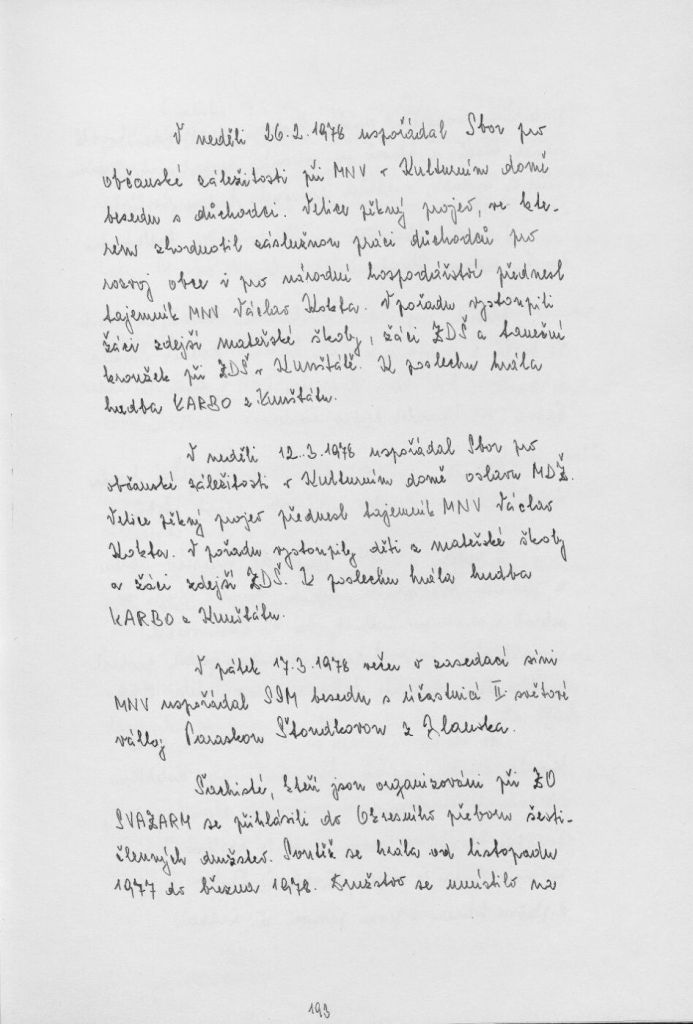 V neděli 26.2.1978 uspořádal Sbor pro
občanské záležitosti při MNV v Kulturním domě
besedu s důchodci. Velice pěkný projev, ve kte-
rém zhodnotil záslužnou práci důchodců pro
rozvoj obce i pro národní hospodářství přednesl
tajemník MNV Václav Kokta. V pořadu vystoupili
žáci zdejší mateřské školy, žáci ZDŠ a taneční
kroužek při ZDŠ v Kunštátě. K poslechu hrála
hudba KARBO z Kunštátu.
V neděli 12.3.1978 uspořádal Sbor pro
občanské záležitosti v Kulturním domě oslavu MDŽ.
Velice pěkný projev přednesl tajemník MNV Václav
Kokta. V pořadu vystoupily děti z mateřské školy
a žáci zdejší ZDŠ. K poslechu hrála hudba
KARBO z Kunštátu.
V pátek 17.3.1978 večer v zasedací síni
MNV uspořádal SSM besedu s účastnicí II. světové
války Paraskou z
Šachisté, kteří jsou organizováni při ZO
SVAZARM se přihlásili do Okresního přeboru šesti-
členných družstev. Soutěž se hrála od listopadu
1977 do března 1978. Družstvo se umístilo na
193